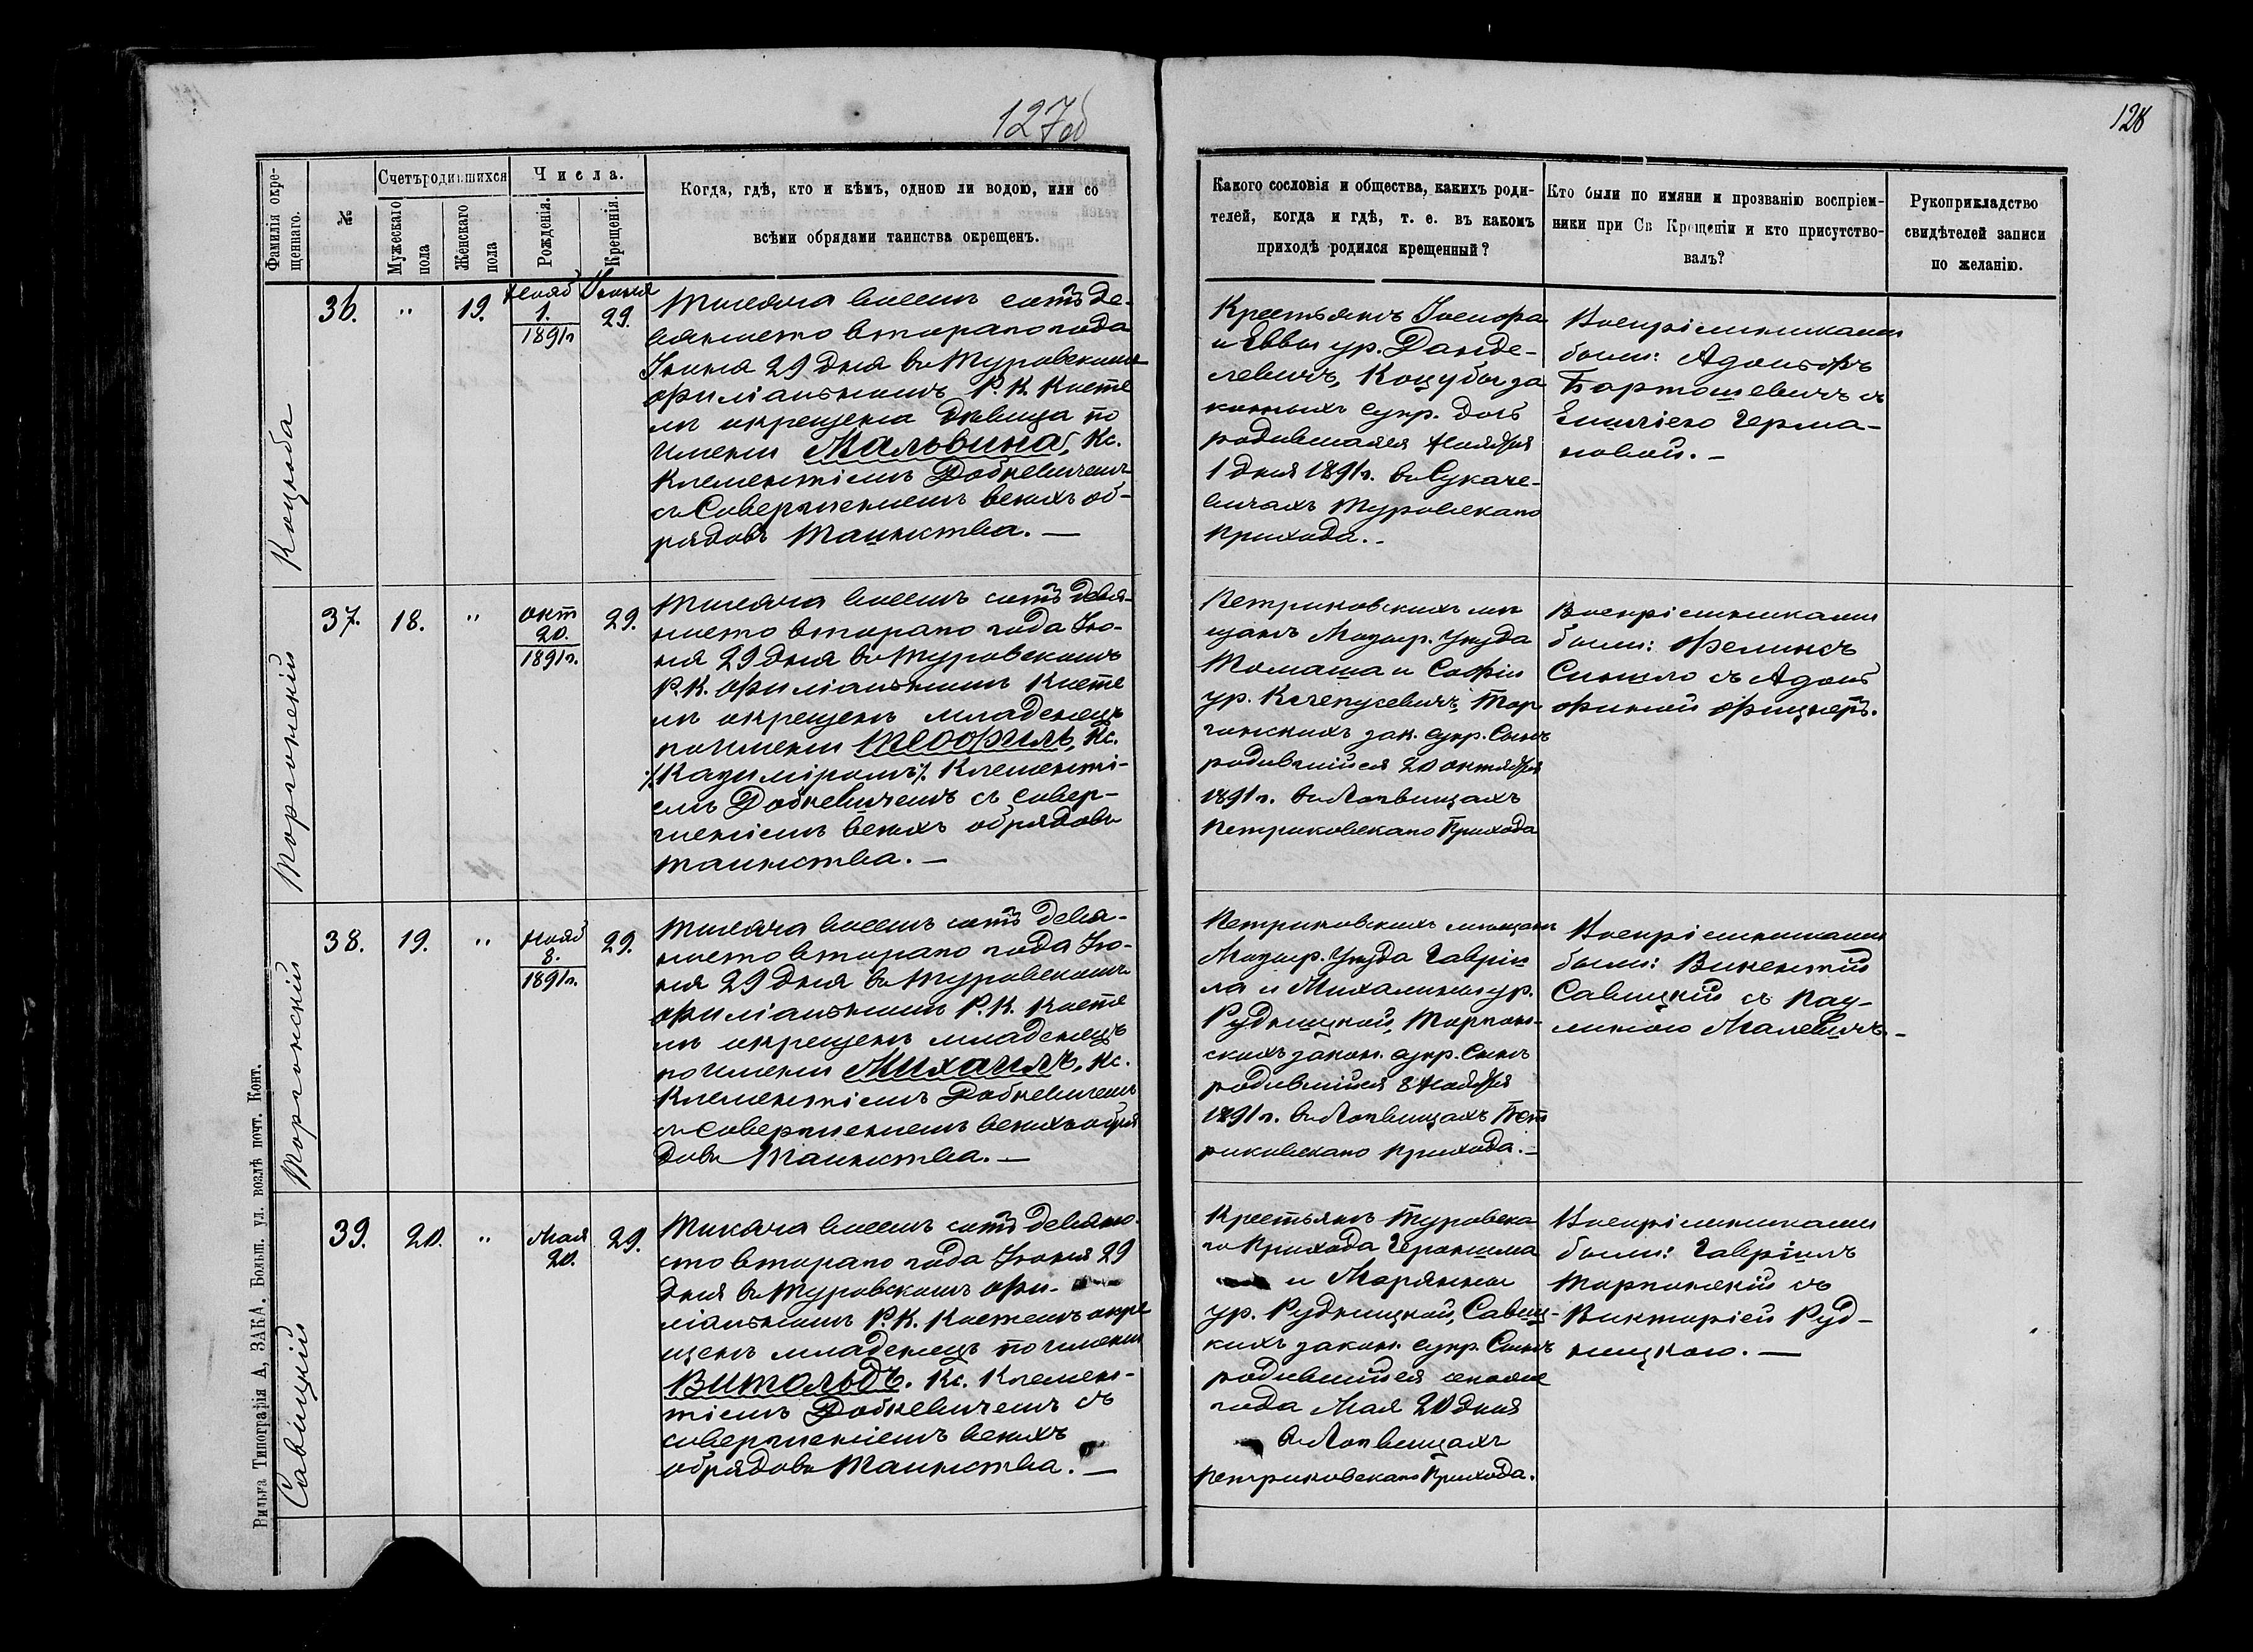 127об
128
Фамилія окре-
щеннаго.
№
Счетъ родившихся
Мужескаго
пола
Женскаго
пола
Числа.
Рожденія.
Крещенія.
Когда, гдѣ, кто и кѣмъ, одною ли водою, или со
всѣми обрядами таинства окрещенъ.
Какого сословія и общества, какихъ роди-
телей, когда и гдѣ, т. е. въ какомъ
приходѣ родился крещенный?
Кто были по имяни и прозванію воспріем-
ники при Св Крещеніи и кто присутство-
валъ?
Рукоприкладство
свидѣтелей записи
по желанію.
Коцюба
36.
"
19.
Нояб
1.
1891г
Іюня
29.
Тысяча восемь сотъ де-
вяносто втораго года
Іюня 29 дня въ Туровскомъ
филіальномъ Р. К. Косте
лѣ окрещена дѣвица по
имени Мальвина, Кс.
Клементіемъ Добкевичемъ
съ Совершениемъ всѣхъ об-
рядовъ Таинства. —
Крестьянъ Іосифа
и Еввы ур. Данде-
левичъ, Коцубы за
конныхъ супр. дочь
родившаяся Ноября
1 дня 1891г. въ Сукаче-
вичахъ Туровскаго
прихода. -
Воспріемниками
были: Адольфъ
Бартошевичъ съ
Емиліею Герма-
новой. -
Торгонскій
37.
18.
"
Окт
20.
1891г.
29.
Тысяча восемь сотъ девя-
носто втораго года Ію-
ня 29 дня въ Туровскомъ
Р.К. филіальномъ Косте
лѣ окрещенъ младенецъ
по имени Теофиль, Кс.
./.Казиміромъ./. Клементі-
емъ Добкевичемъ съ совер-
шеніемъ всѣхъ обрядовъ
таинства. —
Петриковскихъ мѣ
щанъ Мозыр. Уѣзда
Томаша и Софіи
ур. Тор
гонскихъ зак. супр. Сынъ
родившійся 20 октября
1891г. въ Ляхвищахъ
Петриковскаго Прихода
Воспріемниками
были: Феликсъ
съ Адоль
финой
Торгонскій
38.
19.
"
Нояб
8.
1891г.
29.
Тысяча восемь сотъ девя-
носто втораго года Ію-
ня 29 дня въ Туровскомъ
филіальномъ Р. К. Косте
лѣ окрещенъ младенецъ
по имени Михаилъ, Кс.
Клементіемъ Добкевичемъ
съ совершениемъ всѣхъ обря
довъ Таинства. —
Петриковскихъ мѣщанъ
Мозыр. Уѣзда Гавріи
ла и Михалины ур.
Рудницкой, Торгон-
скихъ закон. супр. Сынъ
родившійся 8 Ноября
1891г. въ Ляхвищахъ Пет
риковскаго прихода. -
Воспріемниками
были: Викентій
Савицкій съ Пау-
линою Малевичъ. -
Савицкій
39.
20.
"
Мая
20.
29.
Тысяча восемь сотъ девяно-
сто втораго года Іюня 29
дня въ Туровскомъ фи-
ліальномъ Р. К. Костелѣ окре
щенъ младенецъ по имени
Витольдъ. Кс. Клемен-
тіемъ Добкевичемъ съ
совершеніемъ всѣхъ
обрядовъ Таинства. —
Крестьянъ Туровска
го Прихода Геронима
и Марянны
ур. Рудницкой, Савиц-
кихъ закон. супр. Сынъ
родившійся сего же
года Мая 20 дня
въ Ляхвищахъ
Петриковскаго Прихода.
Воспріемниками
были: Гавріилъ
Торгонскій съ
Викторіей Руд-
ницкою. —
Вильна Типографія А, ЗАКА. Больш. ул. возлѣ почт. Конт.